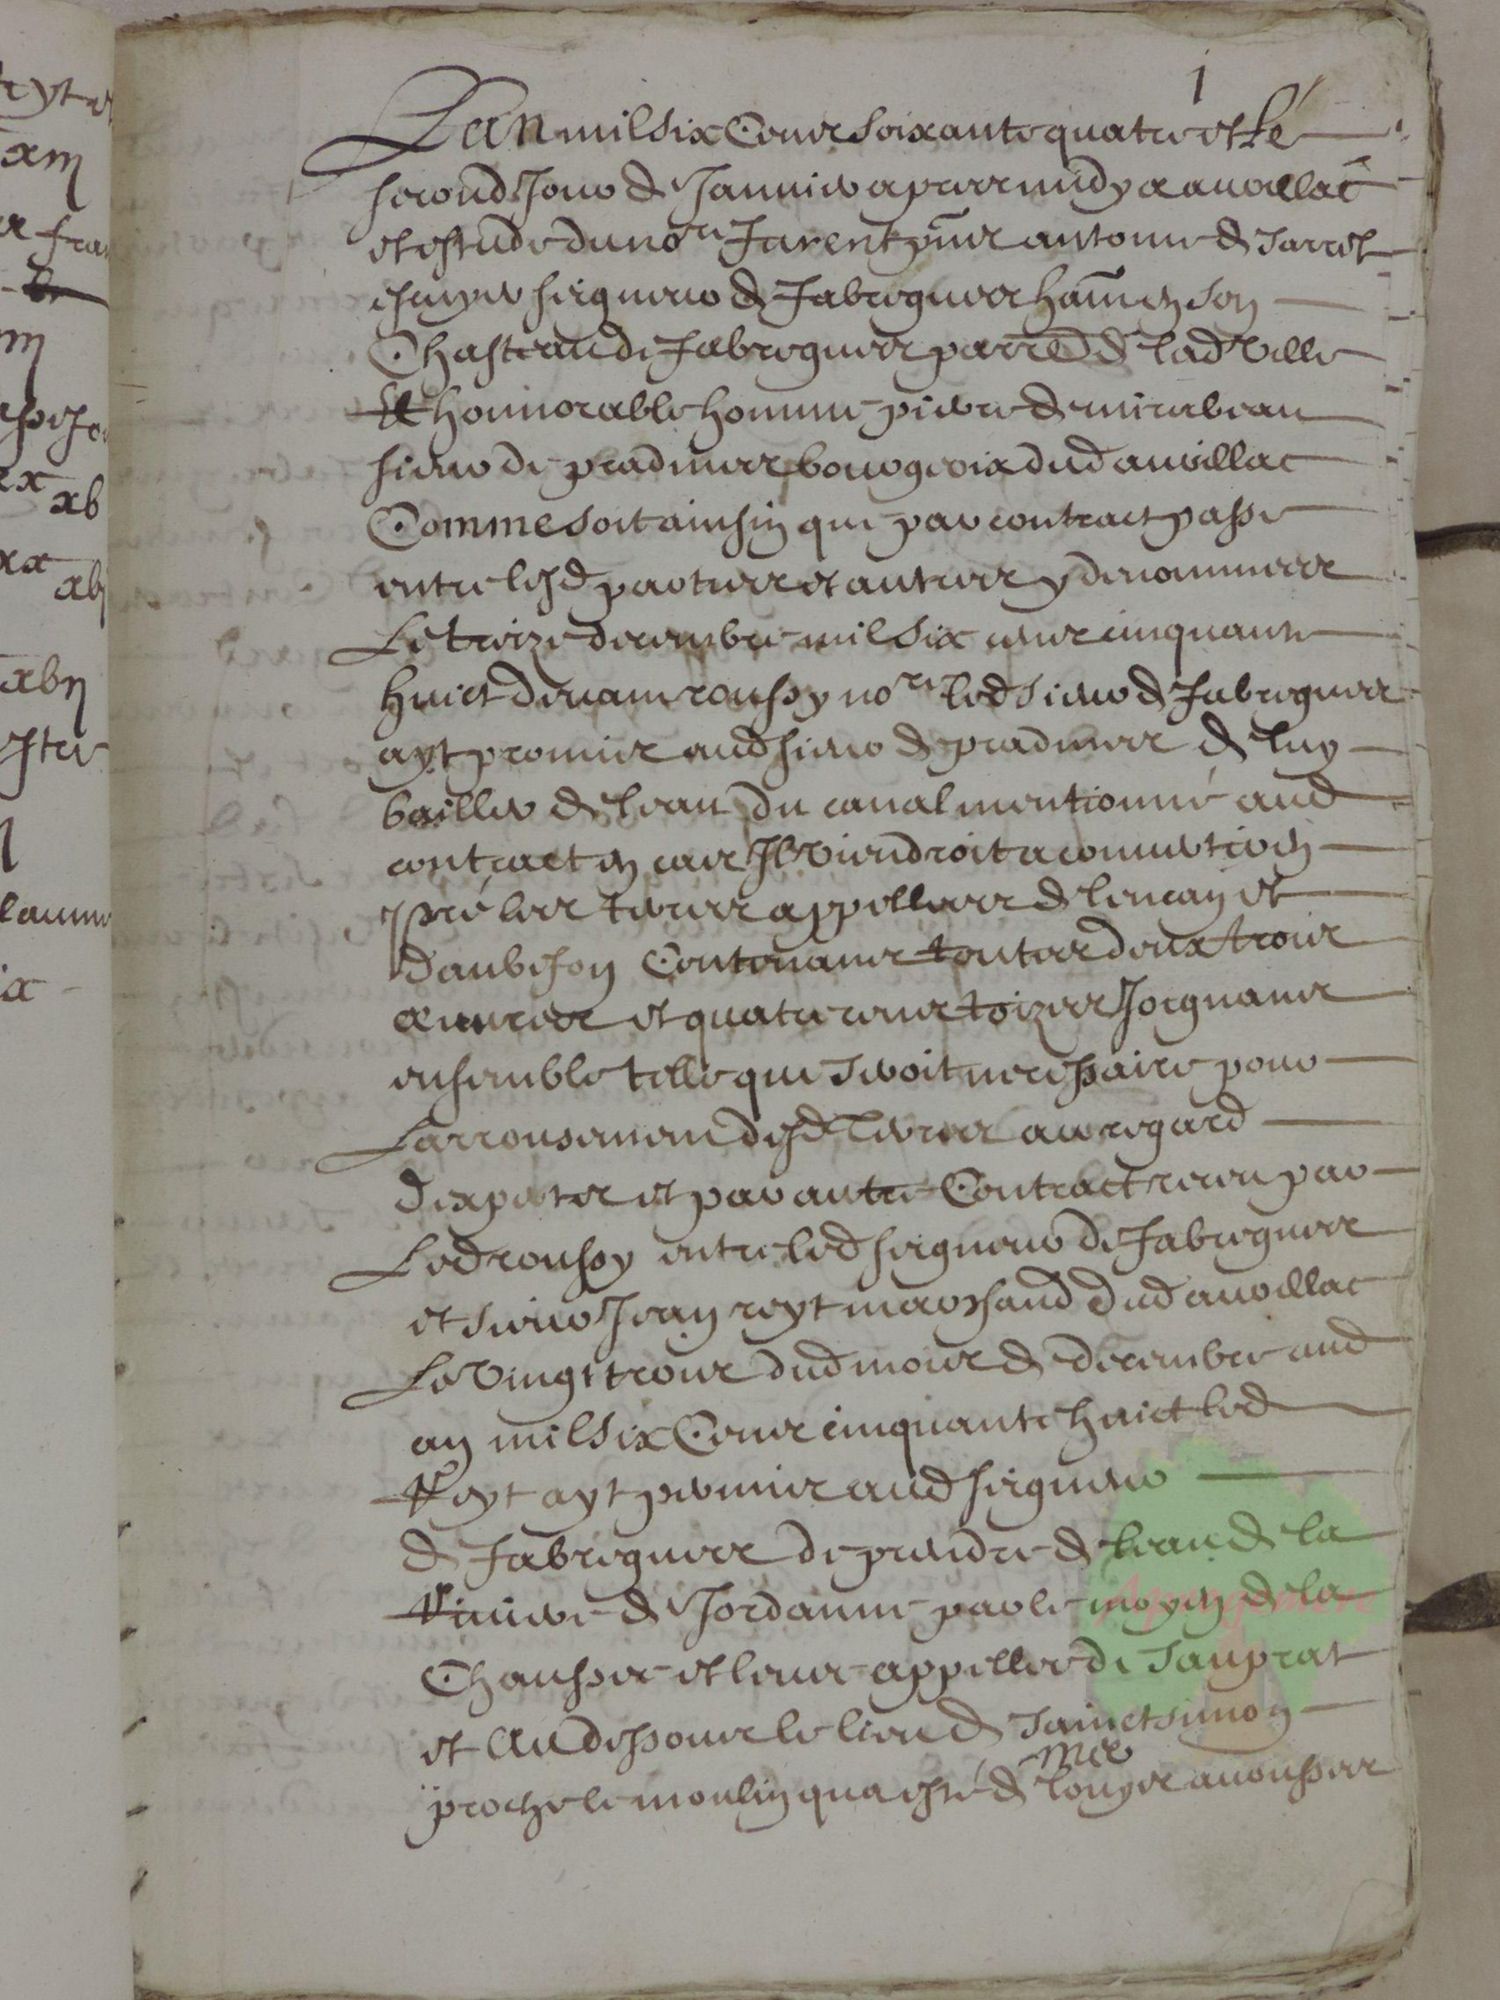 1
Lan mil six Cens soixante quatre et le
second Jour de Janvier apres midy a aurillac
et estude du nore furent pns antoine de Sarret
escuyer seigneur de fabregues hant en son
Chasteau de fabregues parre de lad ville
Et honnorable homme pierre de mirebeau
sieur de pradines bourgeoix dud aurillac
Comme soit ainsin que par contract passe
entre lesd parties et autres y denommees
Le treize decembre mil six cens cinquante
huict devant roussy nore led sieur de fabregues
ayt promis aud sieur de pradines de luy
bailler de leau du canal mentionné aud
contract en cas Il viendroit a convertir en
pré les terres appellees de lencan et
daubeson Contenans toutes deux trois
et quatre cens toizes Joignans
ensemble telle que seroit necessaire pour
Larrousement desd terres au regard
dexpertz et par autre Contract receu par
Led roussy entre led seigneur de fabregues
et sieur Jean reyt marchand dud aurillac
Le Vingt trois dud mois de decembre aud
an mil six Cens cinquante huict led
Reyt ayt promis aud seigneur
de fabregues de prendre de leau de la
Riviere de Jordanne par le moyen de la
Chaussee et leve appellee de Sauprat
et au dessous le lieu de Sainct simon
proche le moulin qua esté de mre louys avousses